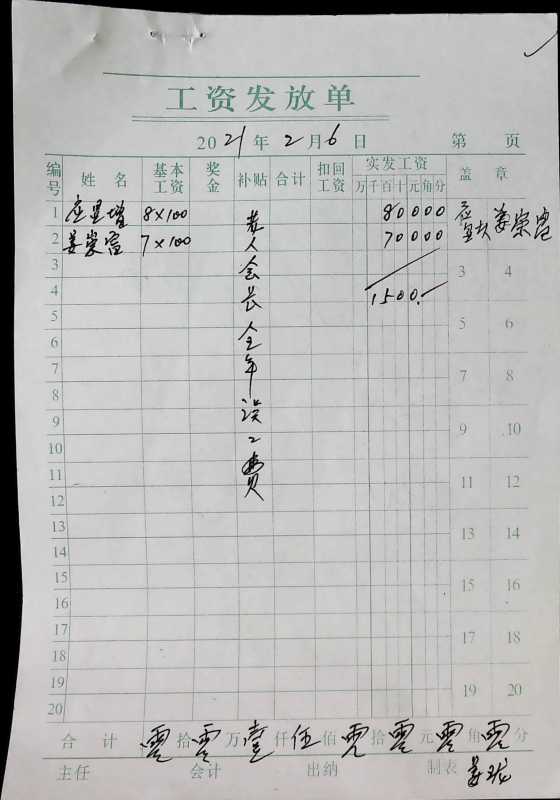 工资发放单
2021年2月6日 第 页
编号 姓名 基本工资 奖金 补贴 合计 扣回工资 实发工资 盖章
万 千 百 十 元 角 分
1 应显增 8×100 80000
2 姜崇富 7×100 70000 姜崇富
3 3 4
4 1500.
5 5 6
6
7 7 8
8
9 9 10
10
11 11 12
12
13 13 14
14
15 15 16
16
17 17 18
18
19 19 20
20
老人会长全年误工费
合计 零拾零万壹仟伍佰零拾零元零角零分
主任 会计 出纳 制表 姜珑